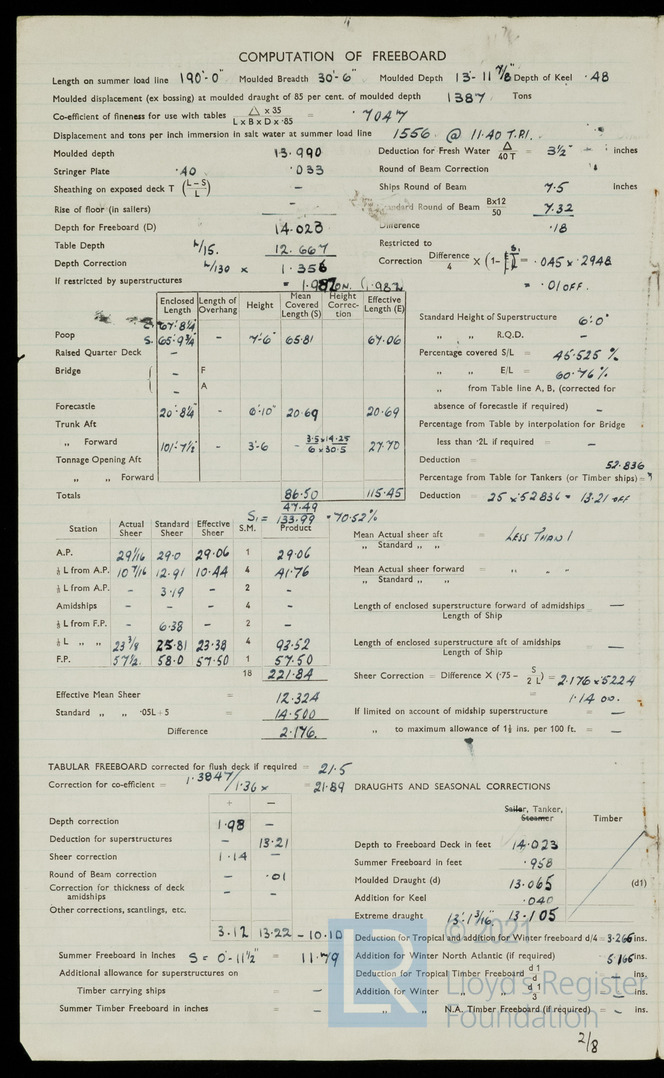 COMPUTATION OF FREEBOARD
Length on summer load line 190'-0" Moulded Breadth 30'-6" Moulded Depth 13'-11 7/8" Depth of Keel ·48
Moulded displacement (ex bossing) at moulded draught of 85 per cent. of moulded depth 1387 Tons
Co-efficient of fineness for use with tables △ x 35 / L x B x D x ·85 = ·7047
Displacement and tons per inch immersion in salt water at summer load line 1556 @ 11.40 T.P.I.
Moulded depth 13.990 Deduction for Fresh Water △ / 40 T = 3½" - inches
Stringer Plate ·40 ·033 Round of Beam Correction
Sheathing on exposed deck T (L—S / L) — Ships Round of Beam 7.5 inches
Rise of floor (in sailers) — Standard Round of Beam Bx12 / 50 7.32
Depth for Freeboard (D) 14.023 Difference ·18
Table Depth L/15. 12.667 Restricted to
Depth Correction L/130 x 1.356 Correction Difference / 4 X (1— S₁/L) = ·045 x ·2948
If restricted by superstructures = 1.98 ON. (1.982 = ·01 OFF.
Enclosed Length Length of Overhang Height Mean Covered Length (S) Height Correction Effective Length (E)
Standard Height of Superstructure 6'.0"
S. 67'.8¼"
Poop S. 65.9¾" - 7'-6" 65.81 67.06
" " R.Q.D. —
Raised Quarter Deck — Percentage covered S/L = 45.525 %
Bridge — F " " E/L = 60.76 %
— A " from Table line A, B, (corrected for
Forecastle 20'.8¼" - 6'.10" 20.69 20.69 absence of forecastle if required) —
Trunk Aft Percentage from Table by interpolation for Bridge
" Forward 101'-7½" - 3'-6 - 3.5 x 14.25 / 6 x 30.5 27.70 less than ·2L if required = —
Tonnage Opening Aft Deduction = 52.836
" " Forward Percentage from Table for Tankers (or Timber ships) =
Totals 86.50 115.45 Deduction 25 x ·52836 = 13.21 OFF
47.49
S₁ = 133.99 = 70.52%
Station Actual Sheer Standard Sheer Effective Sheer S.M. Product
Mean Actual sheer aft / " Standard " " = LESS THAN 1
A.P. 29 1/16 29.0 29.06 1 29.06
⅙ L from A.P. 10 7/16 12.91 10.44 4 41.76 Mean Actual sheer forward / " Standard " " = " " "
⅓ L from A.P. - 3.19 - 2 -
Amidships - - - 4 - Length of enclosed superstructure forward of admidships / Length of Ship —
⅓ L from F.P. - 6.38 - 2 -
⅙ L " " 23 3/8 25.81 23.38 4 93.52 Length of enclosed superstructure aft of amidships / Length of Ship = —
F.P. 57½. 58.0 57.50 1 57.50
18 221.84 Sheer Correction = Difference X (·75 — S / 2 L) = 2.176 x ·5224
Effective Mean Sheer = 12.324 = 1.14 ON.
Standard " " ·05L+5 = 14.500 If limited on account of midship superstructure = —
Difference 2.176. " to maximum allowance of 1½ ins. per 100 ft. = —
TABULAR FREEBOARD corrected for flush deck if required = 21.5
Correction for co-efficient = 1.3847 / 1.36 x = 21.89
DRAUGHTS AND SEASONAL CORRECTIONS
+ — Sailer, Tanker, Steamer Timber
Depth correction 1.98 —
Deduction for superstructures — 13.21 Depth to Freeboard Deck in feet 14.023
Sheer correction 1.14 — Summer Freeboard in feet ·958
Round of Beam correction — ·01 Moulded Draught (d) 13.065 (d1)
Correction for thickness of deck amidships — — Addition for Keel ·040
Other corrections, scantlings, etc. Extreme draught 13'.1 3/16" 13.105
3.12 13.22 -10.10 Deduction for Tropical and addition for Winter freeboard d/4 = 3.266 ins.
Summer Freeboard in Inches S = 0'-11½" = 11.79 Addition for Winter North Atlantic (if required) = 5.166 ins.
Additional allowance for superstructures on Deduction for Tropical Timber Freeboard d 1 / 4 = — ins.
Timber carrying ships = — Addition for Winter " " d 1 / 3 = — ins.
Summer Timber Freeboard in inches = — " " N.A. Timber Freeboard (if required) = — ins.
© 2021
LR Lloyd's Register
Foundation
2/8